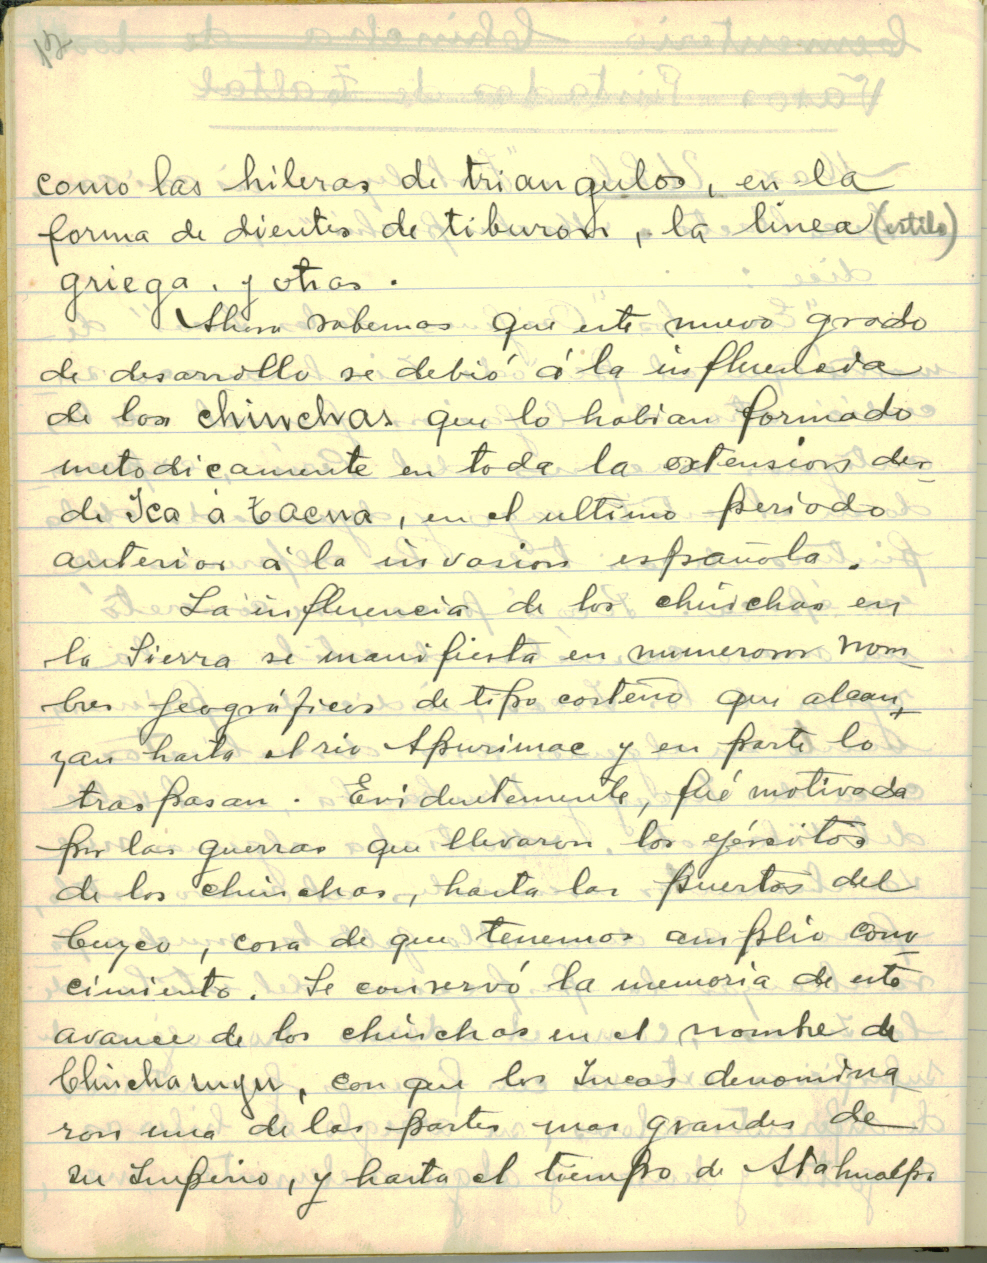 12
como las hileras de triangulos, en la
forma de dientes de tiburon, la linea (estilo)
griega, y otras.
Ahora sabemos que este nuevo grado
de desarrollo se debió á la influencia
de los chinchas que lo habian formado
metodicamente en toda la extension des-
de Ica à Tacna, en el ultimo periodo
anterior à la invasion española.
La influencia de los chinchas en
la Sierra se manifiesta en numerosos nom
bres geográficos de tipo costeño que alcan-
zan hasta el rio Apurimac y en parte lo
traspasan. Evidentemente, fué motivada
por las guerras que llevaron los ejércitos
de los chinchas, hasta las puertas del
Cuzco, cosa de que tenemos amplio cono
cimiento. Se conservó la memoria de este
avance de los chinchas en el nombre de
Chinchasuyu, con que los Incas denomina
ron una de las partes mas grandes de
su Imperio, y hasta el tiempo de Atahualpa